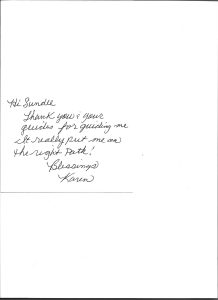 Hi Sundee
Thank you & your
guides for guiding me
It really put me on
the right Path!
Blessings
Karin